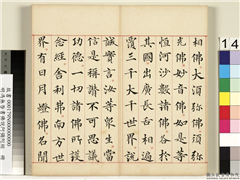 相佛大須彌佛須彌
光佛妙音佛如是等
恒河沙數諸佛各於
其國出廣長舌相遍
覆三千大千世界說
誠實言汝等衆生當
信是稱讚不可思議
功德一切諸佛所護
念經舍利弗南方世
界有日月燈佛名聞
14